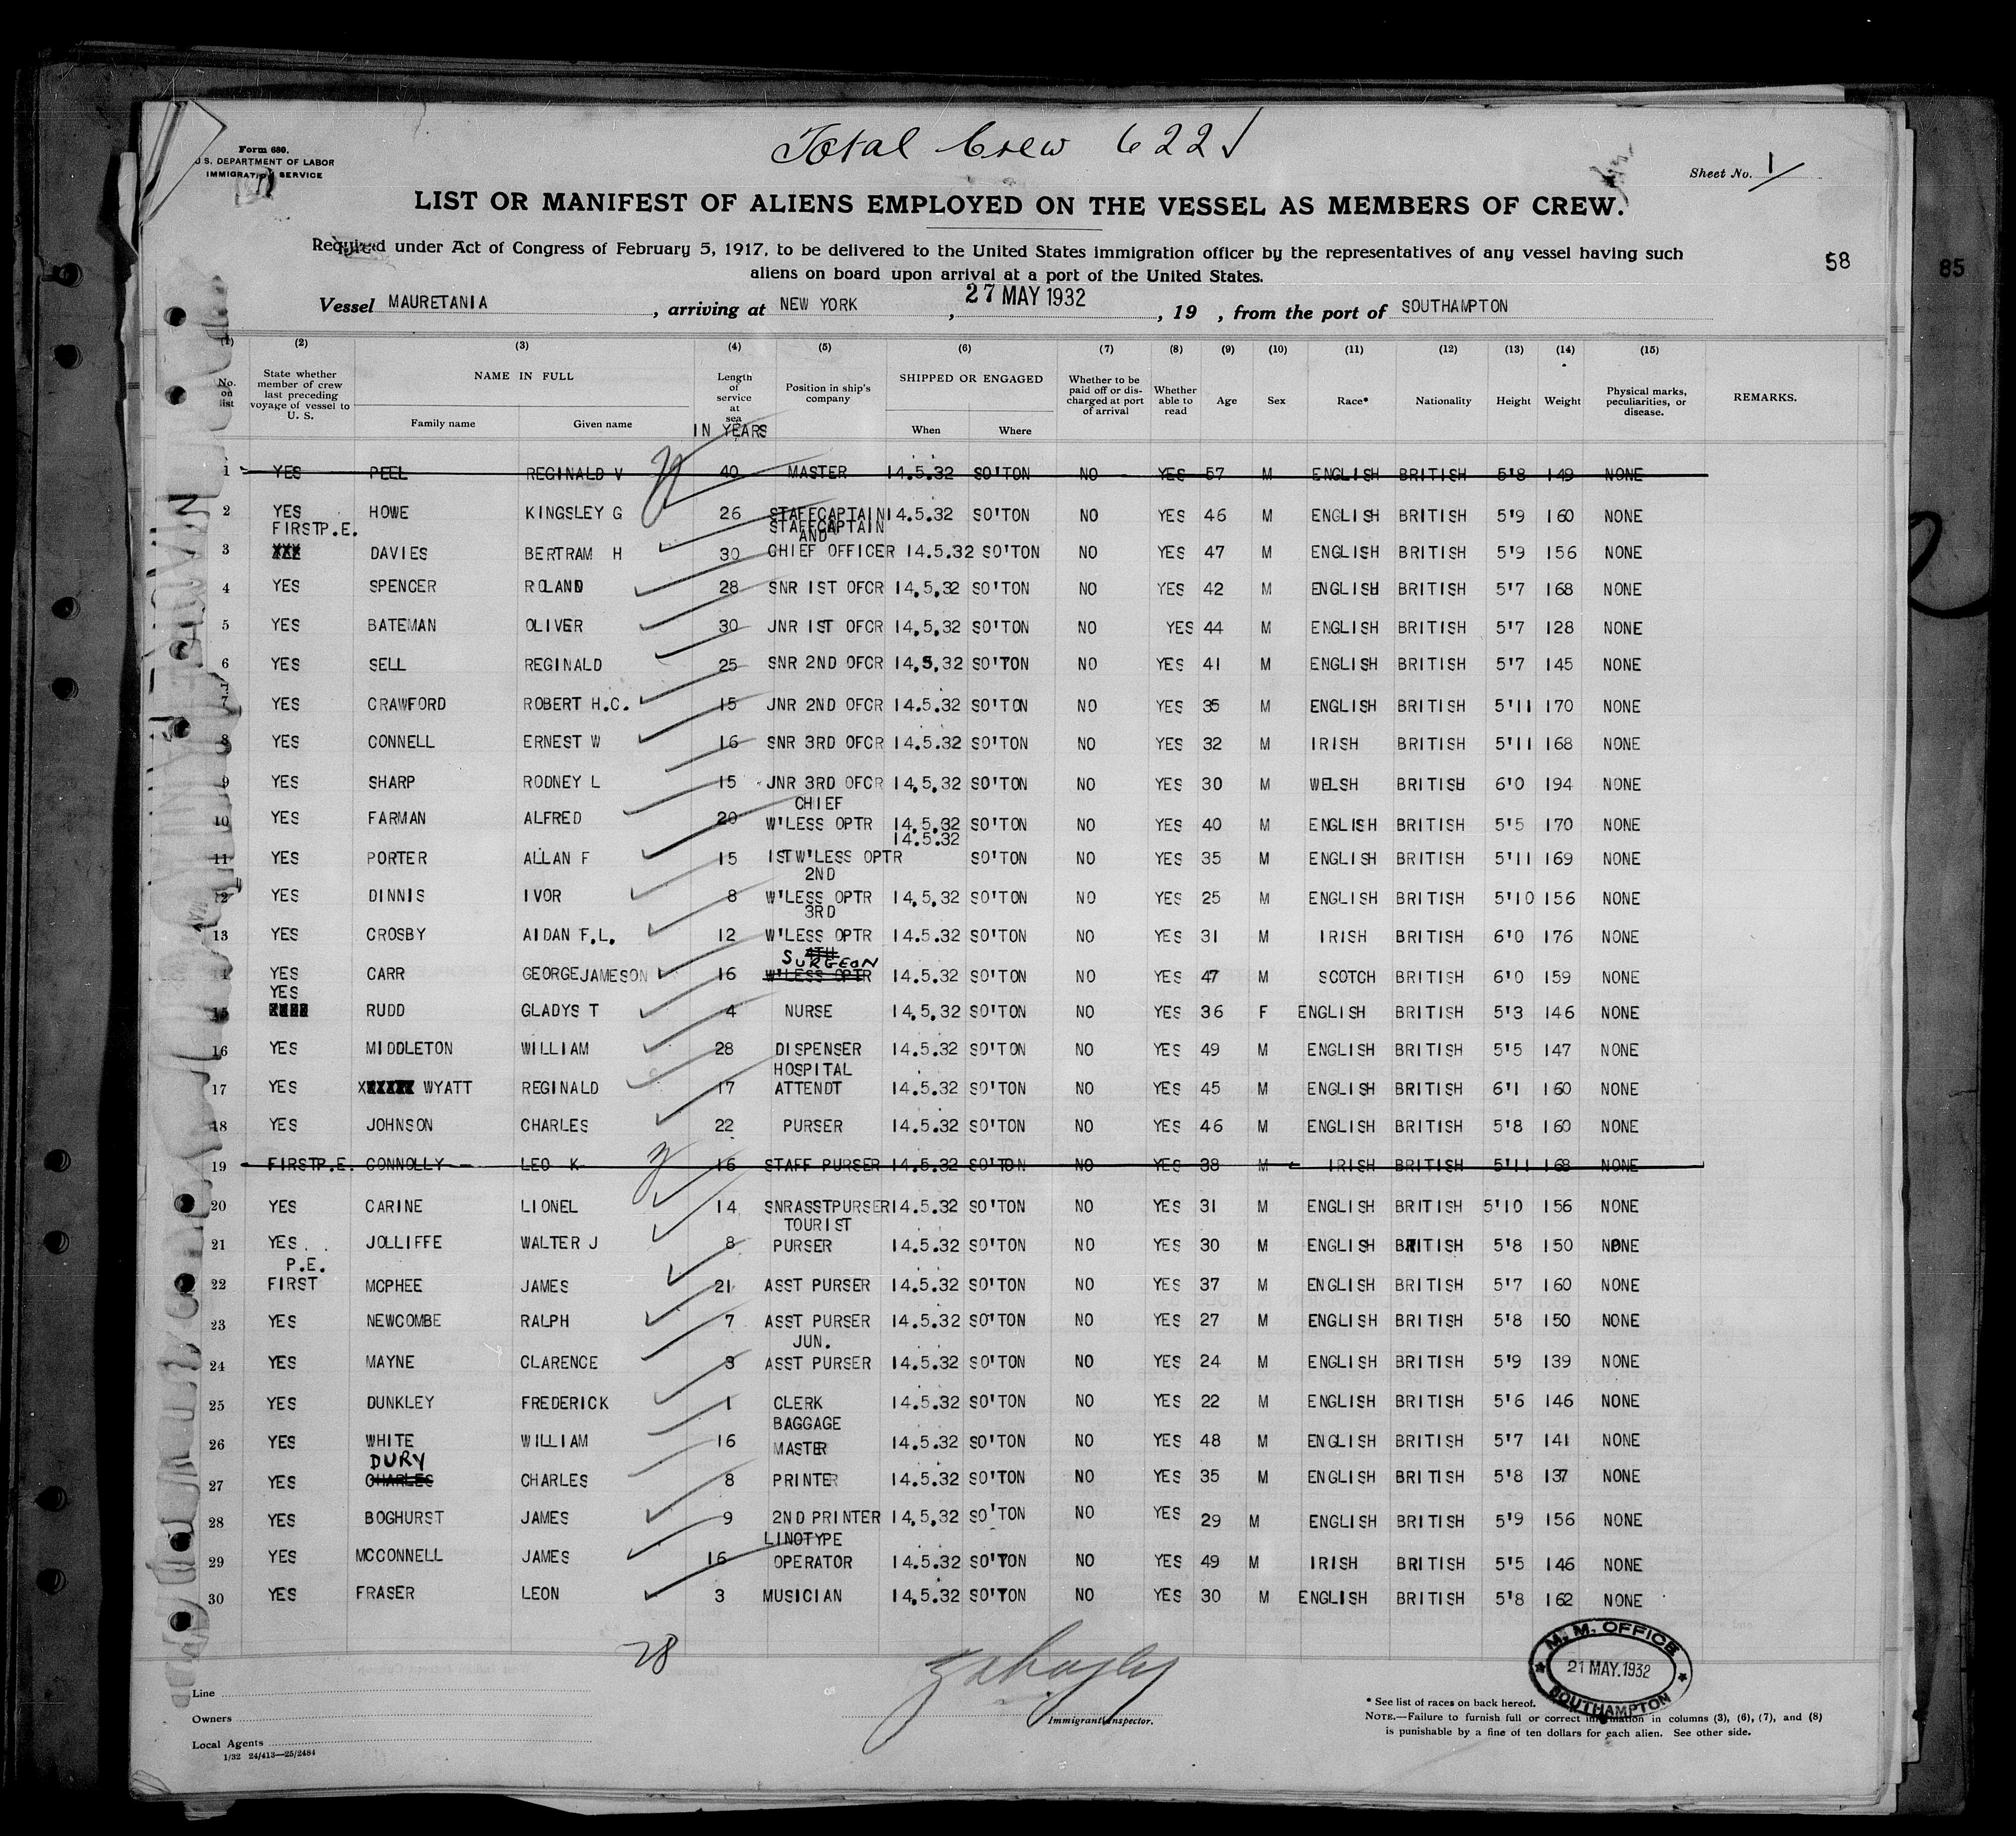 Total Crew 622
Form 680.
U.S. DEPARTMENT OF LABOR
IMMIGRATION SERVICE
Sheet No. 1
LIST OR MANIFEST OF ALIENS EMPLOYED ON THE VESSEL AS MEMBERS OF CREW.
Required under Act of Congress of February 5, 1917, to be delivered to the United States immigration officer by the representatives of any vessel having such
aliens on board upon arrival at a port of the United States.
58
85
Vessel MAURETANIA, arriving at NEW YORK, 27 MAY 1932, 19 , from the port of SOUTHAMPTON
(1) (2) (3) (4) (5) (6) (7) (8) (9) (10) (11) (12) (13) (14) (15)
No. on list
State whether member of crew last preceding voyage of vessel to U. S.
NAME IN FULL
Family name
Given name
Length of service at sea
IN YEARS
Position in ship's company
SHIPPED OR ENGAGED
When
Where
Whether to be paid off or discharged at port of arrival
Whether able to read
Age
Sex
Race*
Nationality
Height
Weight
Physical marks, peculiarities, or disease.
REMARKS.
1 YES PEEL REGINALD V 40 MASTER 14.5.32 SO'TON NO YES 57 M ENGLISH BRITISH 5'8 149 NONE
2 YES HOWE KINGSLEY G 26 STAFFCAPTAIN 14.5.32 SO'TON NO YES 46 M ENGLISH BRITISH 5'9 160 NONE
FIRST P.E. STAFFCAPTAIN AND
3 DAVIES BERTRAM H 30 CHIEF OFFICER 14.5.32 SO'TON NO YES 47 M ENGLISH BRITISH 5'9 156 NONE
4 YES SPENCER ROLAND 28 SNR 1ST OFCR 14.5.32 SO'TON NO YES 42 M ENGLISH BRITISH 5'7 168 NONE
5 YES BATEMAN OLIVER 30 JNR 1ST OFCR 14.5.32 SO'TON NO YES 44 M ENGLISH BRITISH 5'7 128 NONE
6 YES SELL REGINALD 25 SNR 2ND OFCR 14.5.32 SO'TON NO YES 41 M ENGLISH BRITISH 5'7 145 NONE
7 YES CRAWFORD ROBERT H.C. 15 JNR 2ND OFCR 14.5.32 SO'TON NO YES 35 M ENGLISH BRITISH 5'11 170 NONE
8 YES CONNELL ERNEST W 16 SNR 3RD OFCR 14.5.32 SO'TON NO YES 32 M IRISH BRITISH 5'11 168 NONE
9 YES SHARP RODNEY L 15 JNR 3RD OFCR 14.5.32 SO'TON NO YES 30 M WELSH BRITISH 6'0 194 NONE
CHIEF
10 YES FARMAN ALFRED 20 W'LESS OPTR 14.5.32 SO'TON NO YES 40 M ENGLISH BRITISH 5'5 170 NONE
14.5.32
11 YES PORTER ALLAN F 15 1ST W'LESS OPTR SO'TON NO YES 35 M ENGLISH BRITISH 5'11 169 NONE
2ND
12 YES DINNIS IVOR 8 W'LESS OPTR 14.5.32 SO'TON NO YES 25 M ENGLISH BRITISH 5'10 156 NONE
3RD
13 YES CROSBY AIDAN F.L. 12 W'LESS OPTR 14.5.32 SO'TON NO YES 31 M IRISH BRITISH 6'0 176 NONE
4TH
SURGEON
14 YES CARR GEORGE JAMESON 16 W'LESS OPTR 14.5.32 SO'TON NO YES 47 M SCOTCH BRITISH 6'0 159 NONE
YES
15 RUDD GLADYS T 4 NURSE 14.5.32 SO'TON NO YES 36 F ENGLISH BRITISH 5'3 146 NONE
16 YES MIDDLETON WILLIAM 28 DISPENSER 14.5.32 SO'TON NO YES 49 M ENGLISH BRITISH 5'5 147 NONE
HOSPITAL
17 YES WYATT REGINALD 17 ATTENDT 14.5.32 SO'TON NO YES 45 M ENGLISH BRITISH 6'1 160 NONE
18 YES JOHNSON CHARLES 22 PURSER 14.5.32 SO'TON NO YES 46 M ENGLISH BRITISH 5'8 160 NONE
19 FIRST P.E. CONNOLLY LEO K 16 STAFF PURSER 14.5.32 SO'TON NO YES 38 M IRISH BRITISH 5'11 168 NONE
20 YES CARINE LIONEL 14 SNRASSTPURSER 14.5.32 SO'TON NO YES 31 M ENGLISH BRITISH 5'10 156 NONE
TOURIST
21 YES JOLLIFFE WALTER J 8 PURSER 14.5.32 SO'TON NO YES 30 M ENGLISH BRITISH 5'8 150 NONE
P.E.
22 FIRST MCPHEE JAMES 21 ASST PURSER 14.5.32 SO'TON NO YES 37 M ENGLISH BRITISH 5'7 160 NONE
23 YES NEWCOMBE RALPH 7 ASST PURSER 14.5.32 SO'TON NO YES 27 M ENGLISH BRITISH 5'8 150 NONE
JUN.
24 YES MAYNE CLARENCE 3 ASST PURSER 14.5.32 SO'TON NO YES 24 M ENGLISH BRITISH 5'9 139 NONE
25 YES DUNKLEY FREDERICK 1 CLERK 14.5.32 SO'TON NO YES 22 M ENGLISH BRITISH 5'6 146 NONE
BAGGAGE
26 YES WHITE WILLIAM 16 MASTER 14.5.32 SO'TON NO YES 48 M ENGLISH BRITISH 5'7 141 NONE
DURY
27 YES CHARLES CHARLES 8 PRINTER 14.5.32 SO'TON NO YES 35 M ENGLISH BRITISH 5'8 137 NONE
28 YES BOGHURST JAMES 9 2ND PRINTER 14.5.32 SO'TON NO YES 29 M ENGLISH BRITISH 5'9 156 NONE
LINOTYPE
29 YES MCCONNELL JAMES 16 OPERATOR 14.5.32 SO'TON NO YES 49 M IRISH BRITISH 5'5 146 NONE
30 YES FRASER LEON 3 MUSICIAN 14.5.32 SO'TON NO YES 30 M ENGLISH BRITISH 5'8 162 NONE
28
M.M. OFFICE
21 MAY.1932
SOUTHAMPTON
Line
Owners
Local Agents
1/32 24/413—25/2484
Immigrant Inspector.
* See list of races on back hereof.
NOTE.—Failure to furnish full or correct information in columns (3), (6), (7), and (8)
is punishable by a fine of ten dollars for each alien. See other side.